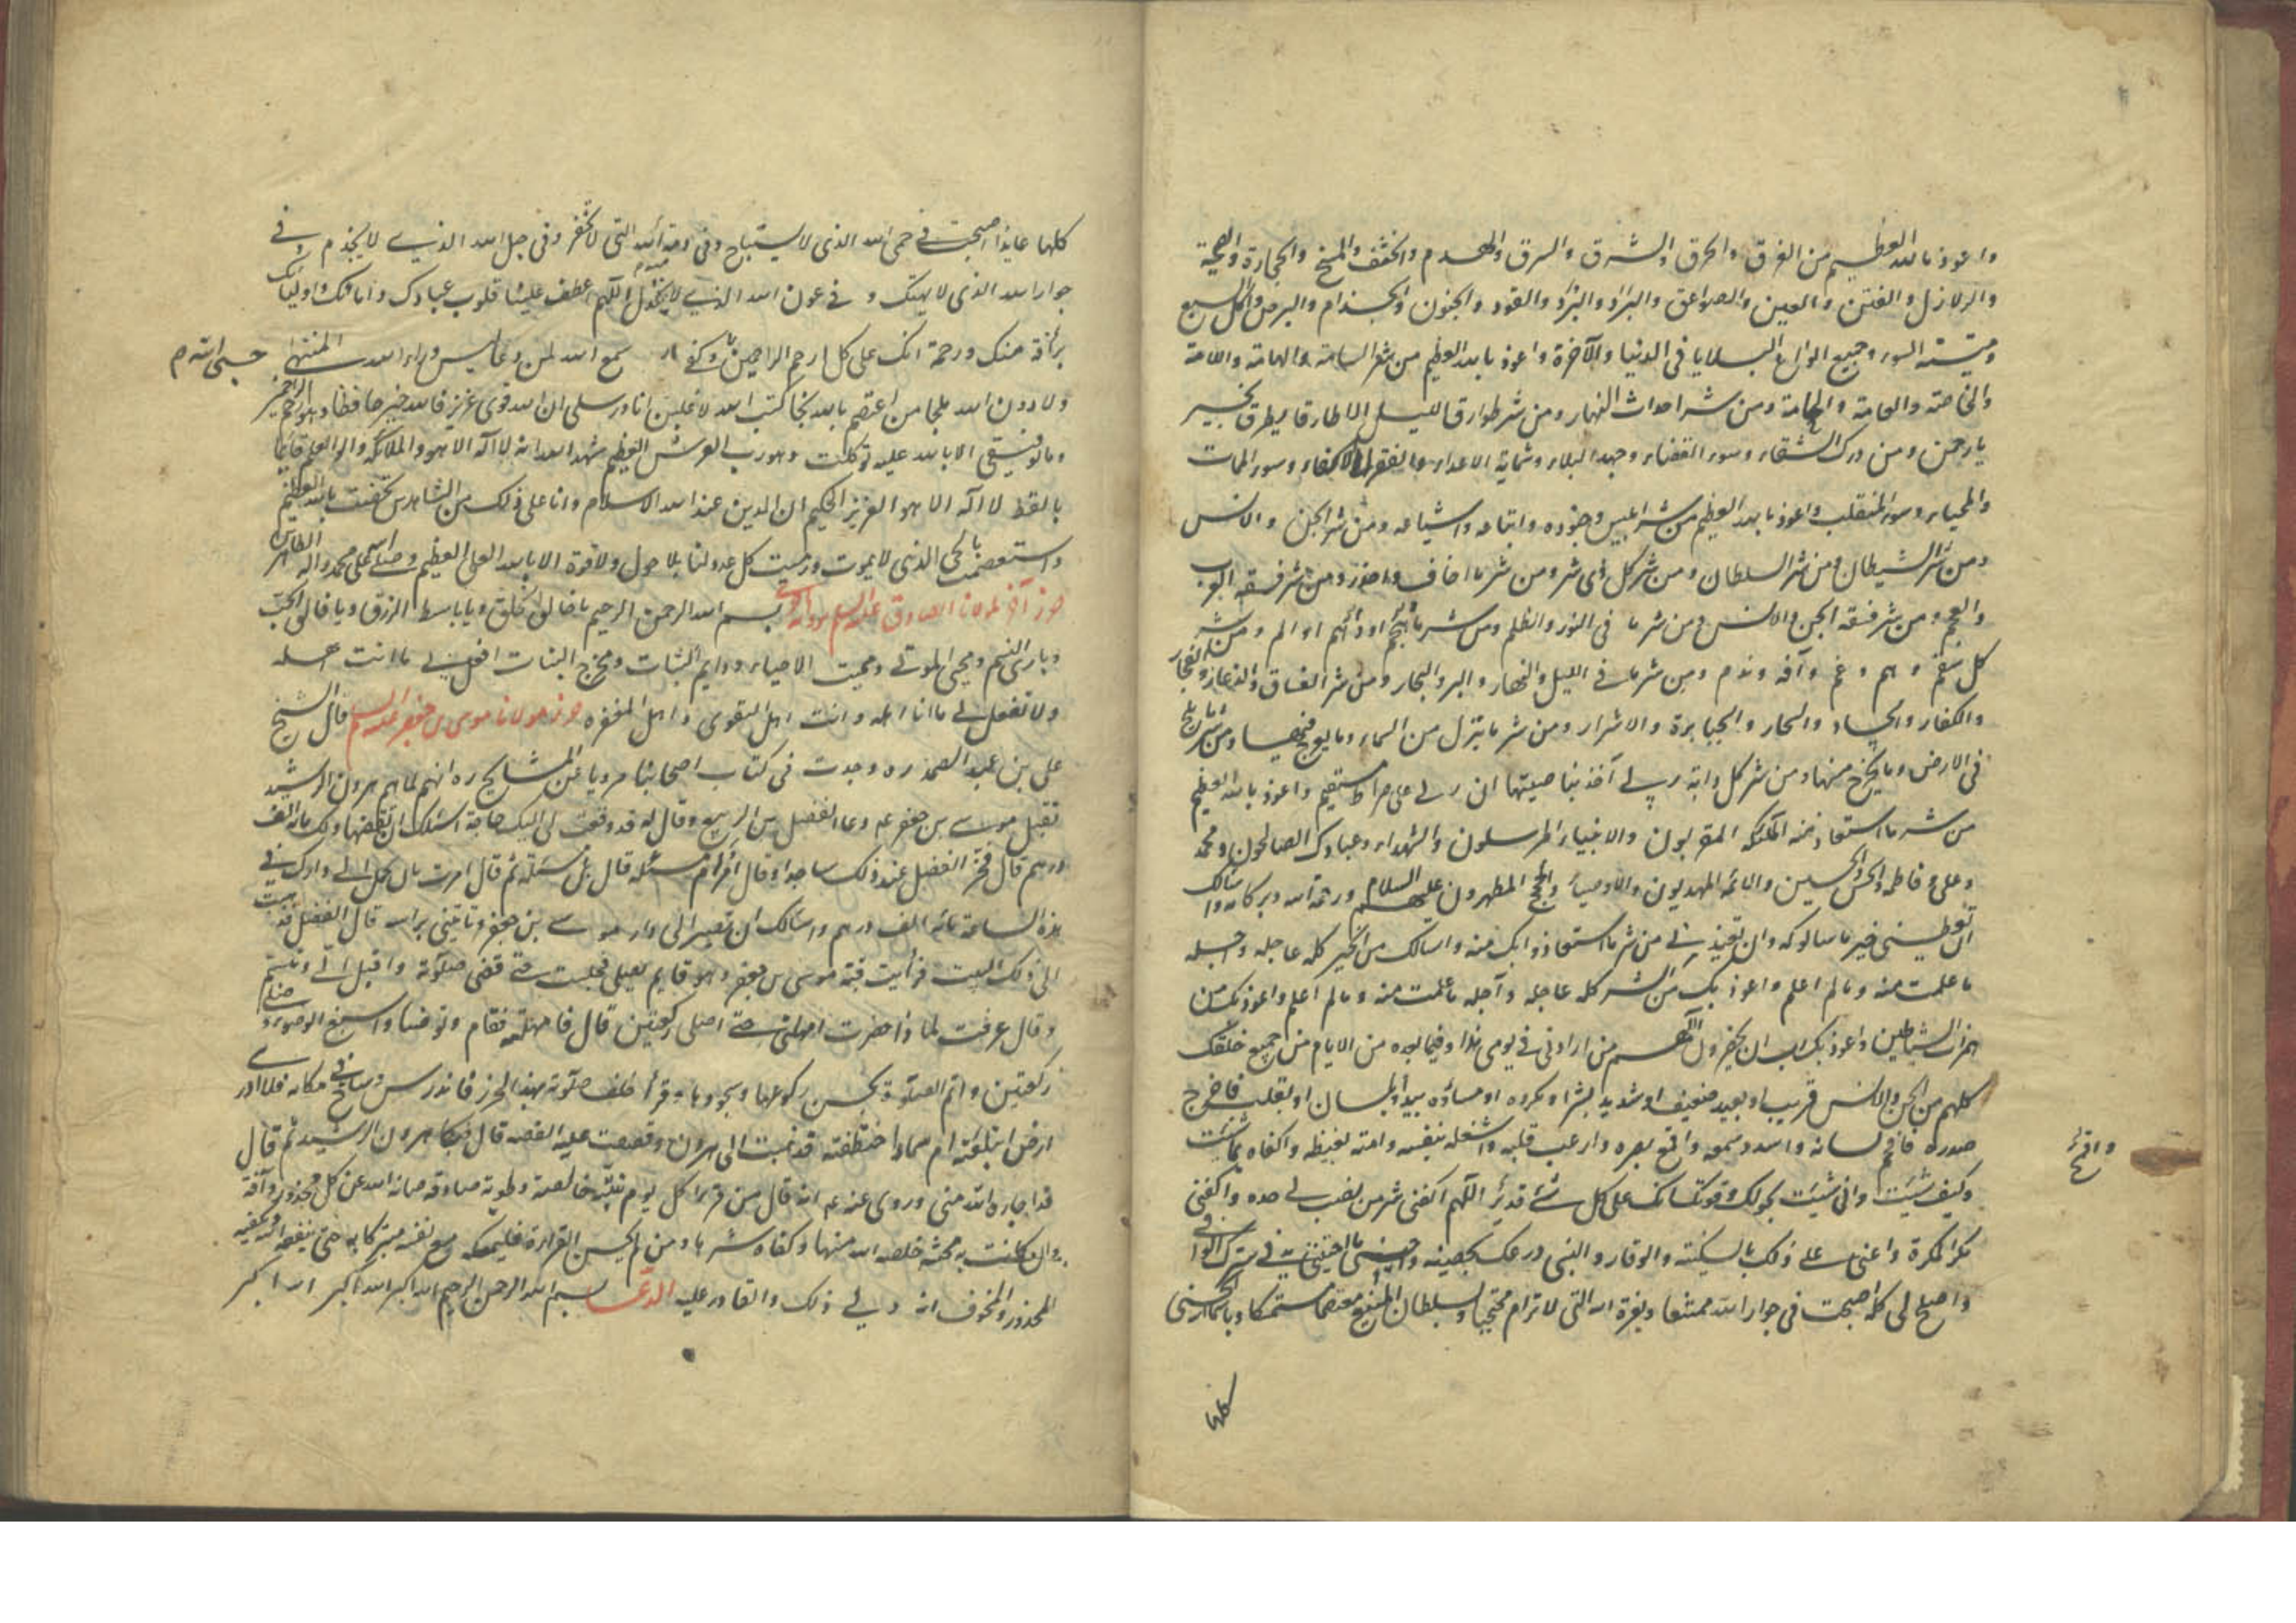 واعوذ بالله العظيم من الغرق والحرق والشرق والسرق والهدم والخسف والمسخ والحجارة والصيحة
والزلازل والفتن والعين والصواعق والبرد والقود والجنون والجذام والبرص واكل السبع
وميتة السوء وجميع انواع البلايا في الدنيا والآخرة واعوذ بالله العظيم من شر السامة والهامة واللامة
والخاصة والعامة والحامة ومن شر احداث النهار ومن شر طوارق الليل الا طارقا يطرق بخير
يا رحمن ومن درك الشقاء وسوء القضاء وجهد البلاء وشماتة الاعداء والفقر الاكفاء وسوء الممات
والمحياء وسوء المنقلب واعوذ بالله العظيم من شر ابليس وجنوده واتباعه واشياعه ومن شر الجن والانس
ومن شر الشيطان ومن شر السلطان ومن شر كل ذي شر ومن شر ما اخاف واحذر ومن شر فسقة العرب
والعجم ومن شر فسقة الجن والانس ومن شر ما في النور والظلم ومن شر ما هجم او دهم او الم ومن شر
كل سقم وهم وغم وآفة وندم ومن شر ما في الليل والنهار والبر والبحار ومن شر الفساق والذعار والفجار
والكفار والحساد والسحار والجبابرة والاشرار ومن شر ما ينزل من السماء وما يعرج فيها ومن شر ما يلج
في الارض وما يخرج منها ومن شر كل دابة ربي آخذ بناصيتها ان ربي على صراط مستقيم واعوذ بالله العظيم
من شر ما استعاذ منه الملئكة المقربون والانبياء المرسلون والشهداء وعبادك الصالحون ومحمد
وعلي وفاطمة والحسن والحسين والائمة المهديون والاوصياء والحجج المطهرون عليهم السلام ورحمة الله وبركاته واسالك
ان تعطيني خير ما سالوكه وان تعيذني من شر ما استعاذوا بك منه واسالك من الخير كله عاجله واجله
ما علمت منه وما لم اعلم واعوذ بك من الشر كله عاجله وآجله ما علمت منه وما لم اعلم واعوذ بك من
همزات الشياطين واعوذ بك رب ان يحضرون اللهم من ارادني في يومي هذا وفيما بعده من الايام من جميع خلقك
كلهم من الجن والانس قريب او بعيد ضعيف او شديد بشر او مكروه او مساءة بيد او بلسان او بقلب فاخرج
صدره فافحم لسانه واسدد سمعه واقمح بصره وارعب قلبه واشغله بنفسه وامته بغيظه واكفناه بما شئت
وكيف شئت وانى شئت بحولك وقوتك انك على كل شئ قدير اللهم اكفني شر من نصب لي حده واكفني
مكر المكرة واعني على ذلك بالسكينة والوقار والبسني درعك الحصينة واحيني ما احييتني في سترك الواقي
واصلح لي كله اصبحت في جوار الله ممتنعا وبعزة الله التي لا ترام محتجبا وبسلطان الله المنيع معتصما متمسكا وباسماء الله الحسنى
كلها عايذا اصبحت في حمى الله الذي لا يستباح وفي ذمة الله التي لا تخفر وفي حبل الله الذي لا يجذم وفي
جوار الله الذي لا يهتك وفي عون الله الذي لا يخذل اللهم اعطف علينا قلوب عبادك وامائك واوليائك
برأفة منك ورحمة انك على كل ارحم الراحمين سمع الله لمن دعا ليس وراء الله منتهى
ولا دون الله ملجا من اعتصم بالله نجا كتب الله لاغلبن انا ورسلي ان الله قوي عزيز فالله خير حافظا وهو ارحم الراحمين
وما توفيقي الا بالله عليه توكلت وهو رب العرش العظيم شهد الله انه لا اله الا هو والملائكة واولو العلم قايما
بالقسط لا اله الا هو العزيز الحكيم ان الدين عند الله الاسلام وانا على ذلك من الشاهدين تحصنت بالله العظيم
واستعصمت بالحي الذي لا يموت ورميت كل عدو لنا بلا حول ولا قوة الا بالله العلي العظيم وصلى الله على محمد واله الطاهرين
حرز آخر لمولانا الصادق عليه السلام بسم الله الرحمن الرحيم يا خالق الخلق ويا باسط الرزق ويا فالق الحب
وبارئ النسم ومحيي الموتى ومميت الاحياء ودايم الثبات ومخرج النبات افعل بي ما انت اهله
ولا تفعل بي ما انا اهله وانت اهل التقوى واهل المغفرة حرز مولانا موسى بن جعفر عليه السلام قال الشيخ
علي بن عبد الصمد ره وجدت في كتاب اصحابنا مرويا عن المشايخ ره انهم لما هم هرون الرشيد
بقتل موسى بن جعفر ع دعا الفضل بن الربيع وقال له قد وقعت لي اليك حاجة اسئلك ان تقضيها ولك ماية الف
درهم قال فخر الفضل عند ذلك ساجدا وقال أمر ام مسئلة قال بل مسئلة ثم قال امرت بان يحمل الى دارك في
هذه الساعة مائة الف درهم واسالك ان تصير الى دار موسى بن جعفر وتاتيني براسه قال الفضل فذهبت
الى ذلك البيت فرأيت فيه موسى بن جعفر وهو قايم يصلي فجلست حتى قضى صلوته واقبل الي وتبسم
وقال عرفت لماذا حضرت امهلني حتى اصلي ركعتين قال فامهلته فقام وتوضأ واسبغ الوضوء وصلى
ركعتين واتم الصلوة بحسن ركوعها وسجودها وقرأ خلف صلوته بهذا الحرز فاندرس وساخ في مكانه فلا ادري
ارض ابتلعته ام سماء اختطفته فذهبت الى هرون وقصصت عليه القصة قال فبكى هرون الرشيد ثم قال
قد اجاره الله مني وروي عنه ع انه قال من قرأ كل يوم بنية خالصة وطوية صادقة صانه الله عن كل محذور وآفة
وان كانت به محنة خلصه الله منها وكفاه شرها ومن لم يحسن القراءة فليمسكه مع نفسه متبركا به حتى ينفعه الله ويكفيه
المحذور والمخوف انه ولي ذلك والقادر عليه الدعاء بسم الله الرحمن الرحيم الله اكبر الله اكبر الله اكبر